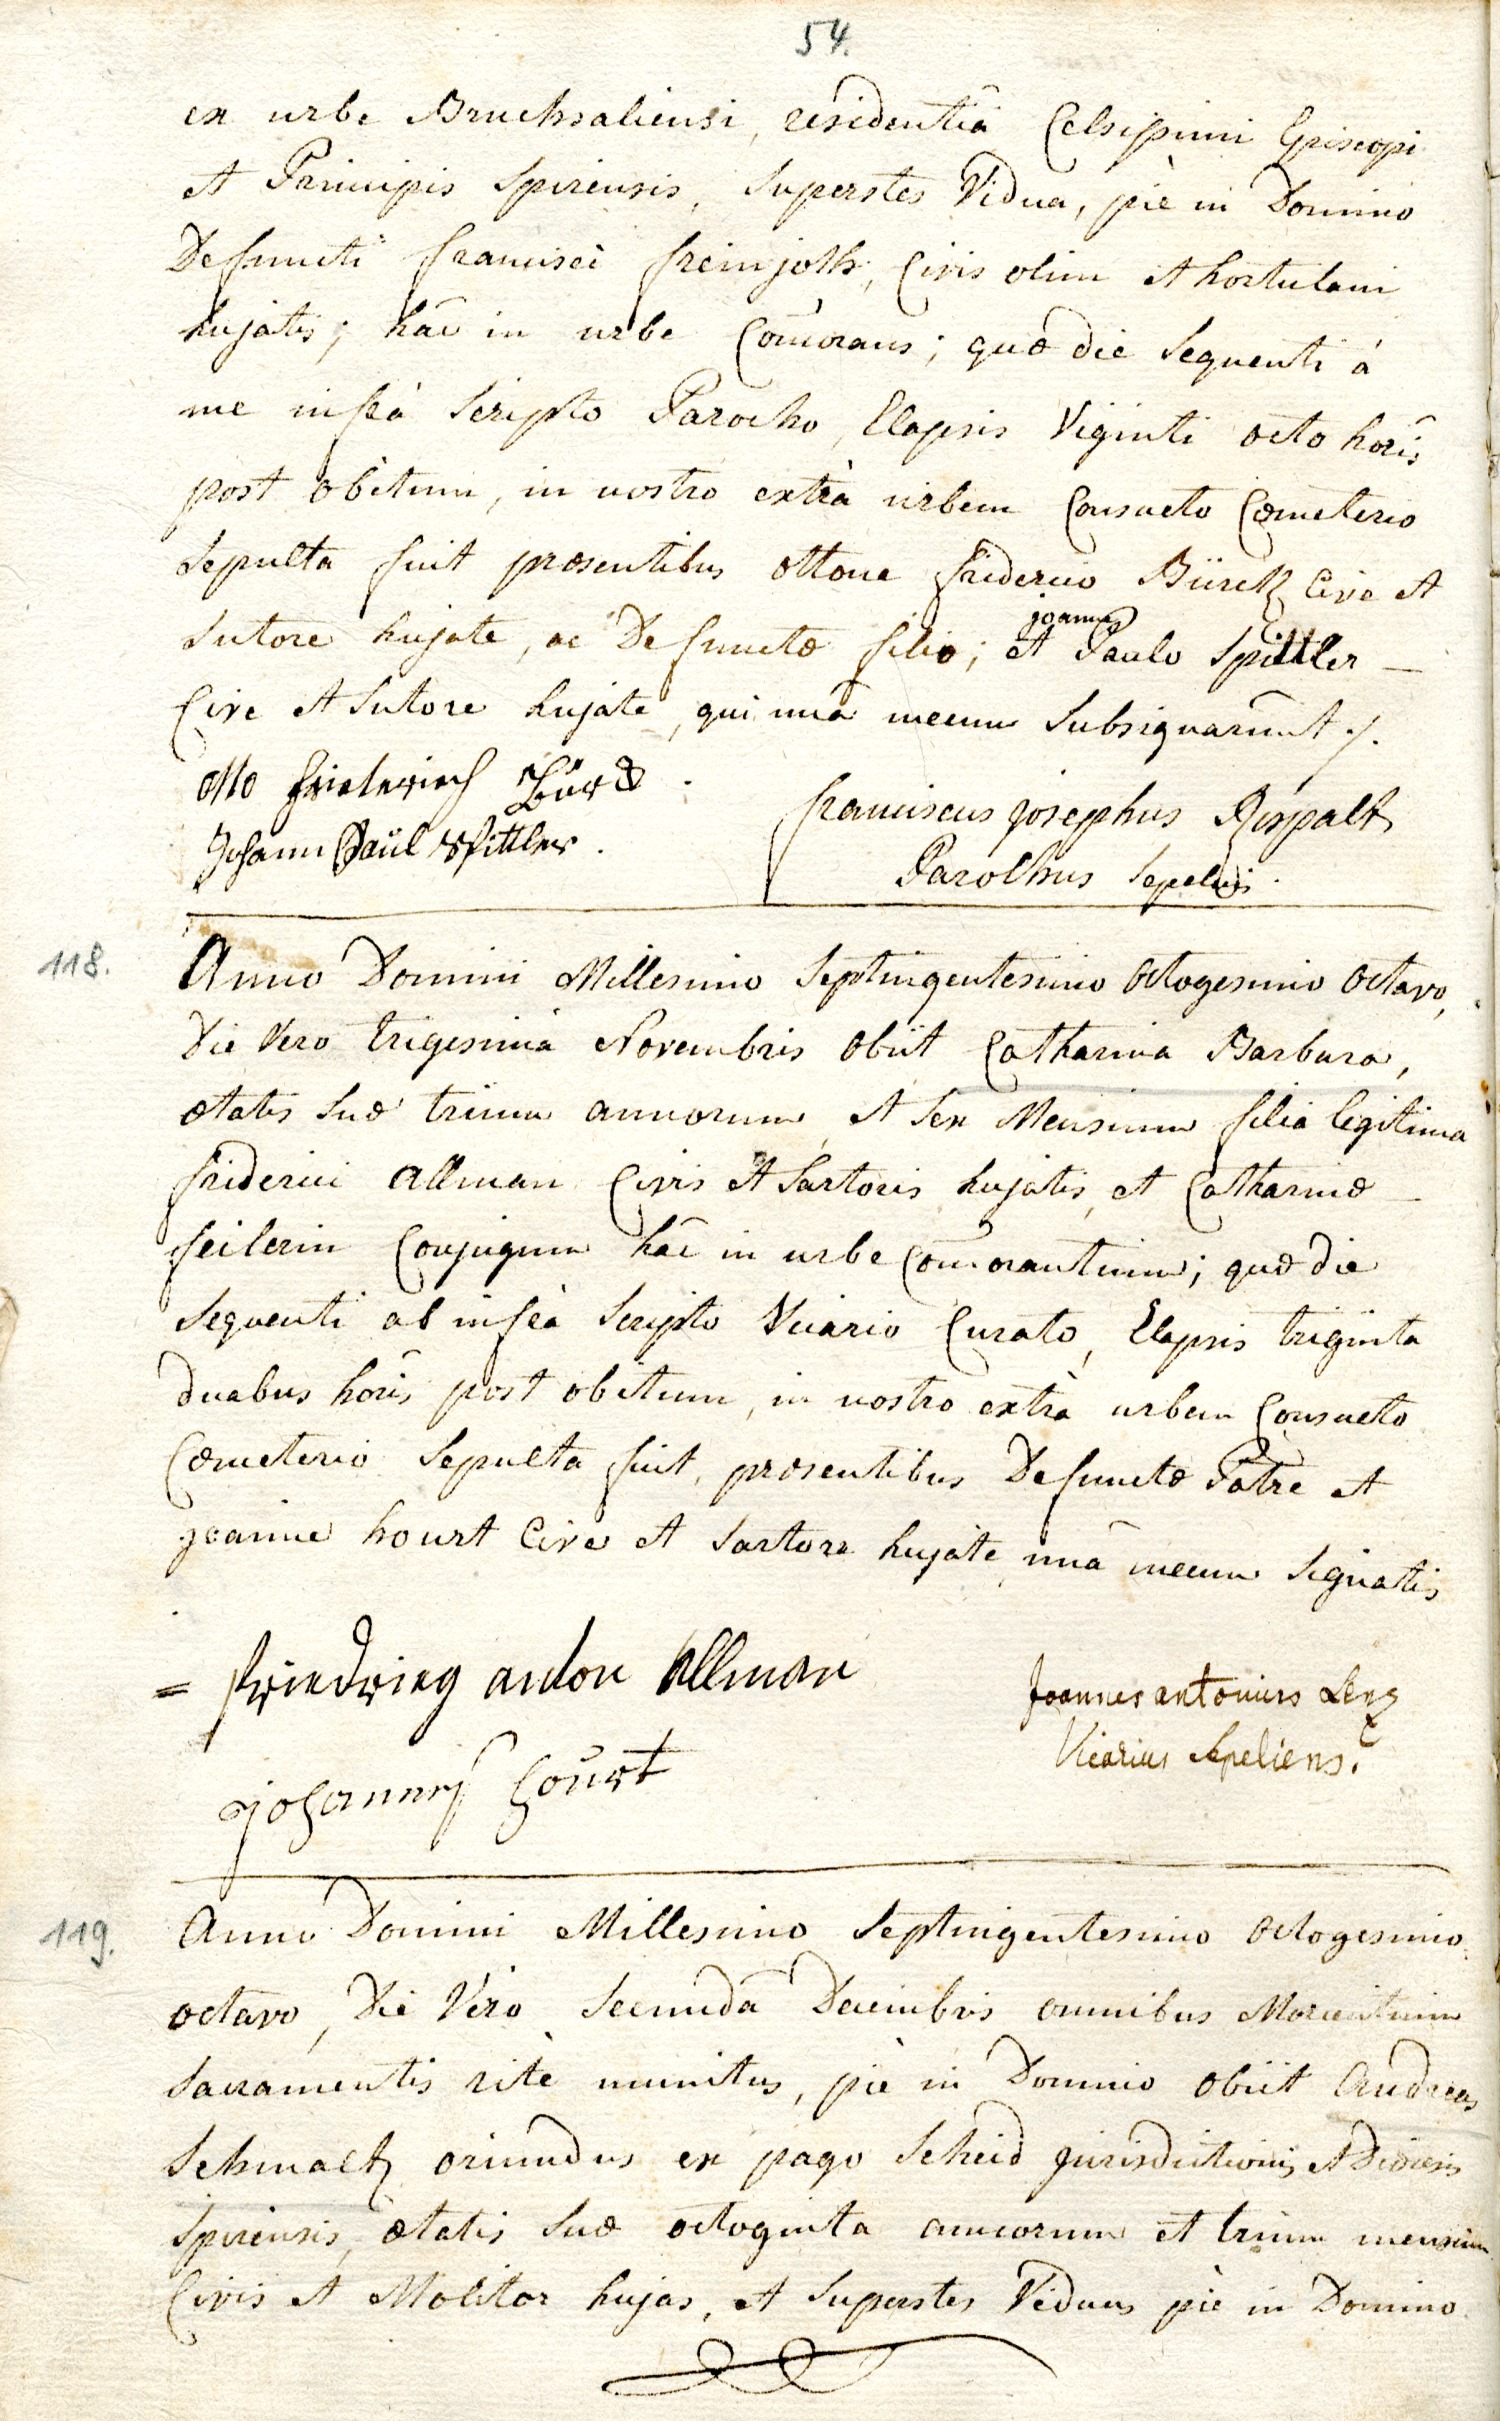 54.
ex urbe Bruchsaliensi, residentiâ Celsissimi Episcopi
et Principis Spirensis, Superstes Vidua, piè in Domino
Defuncti francisci freinjoth, Civis olim et hortulani
hujatis; hâc in urbe Com̄orans; quæ die Sequenti à
me infrà Scripto Parocho, Elapsis Viginti octo horis
post obitum, in nostro extrà urbem Consueto Cœmeterio
Sepulta fuit præsentibus Ottone friderico Bürck Cive et
joanne
Sutore hujate, ac Defunctæ filio; et Paulo Spittler —
Cive et Sutore hujate, qui unâ mecum Subsignarunt ./.
Otto friederich Bürck .
Johann Paul Spittler .
franciscus josephus Rispalt
Parochus Sepelivi .
118.
Anno Domini Millesimo Septingentesimo Octogesimo Octavo,
Die Vero trigesimâ Novembris Obiit Catharina Barbara,
ætatis Suæ trium annorum, et Sex Mensium filia legitima
friderici Allman Civis et Sartoris hujatis, et Catharinæ —
feilerin Conjugum hâc in urbe Com̄orantium; quæ die
Sequenti ab infrà Scripto Vicario Curato, Elapsis triginta
duabus horis post obitum, in nostro extrà urbem Consueto
Cœmeterio Sepulta fuit, præsentibus Defunctæ Patre et
joanne hourt Cive et Sartore hujate unâ mecum Signatis
= friedrieg anton Allman
johannes hourt
Joannes antonius Lenz
Vicarius Sepeliens.
119.
Anno Domini Millesimo Septingentesimo Octogesimo
octavo, Die Vero Secundâ Decembris omnibus Morientium
Sacramentis ritè munitus, piè in Domino obiit Andreas
Schmaltz oriundus ex pago Scheid jurisdictionis et Diœcesis
Spirensis, ætatis Suæ octoginta annorum et trium mensium
Civis et Molitor hujas, et Superstes Viduus piè in Domino